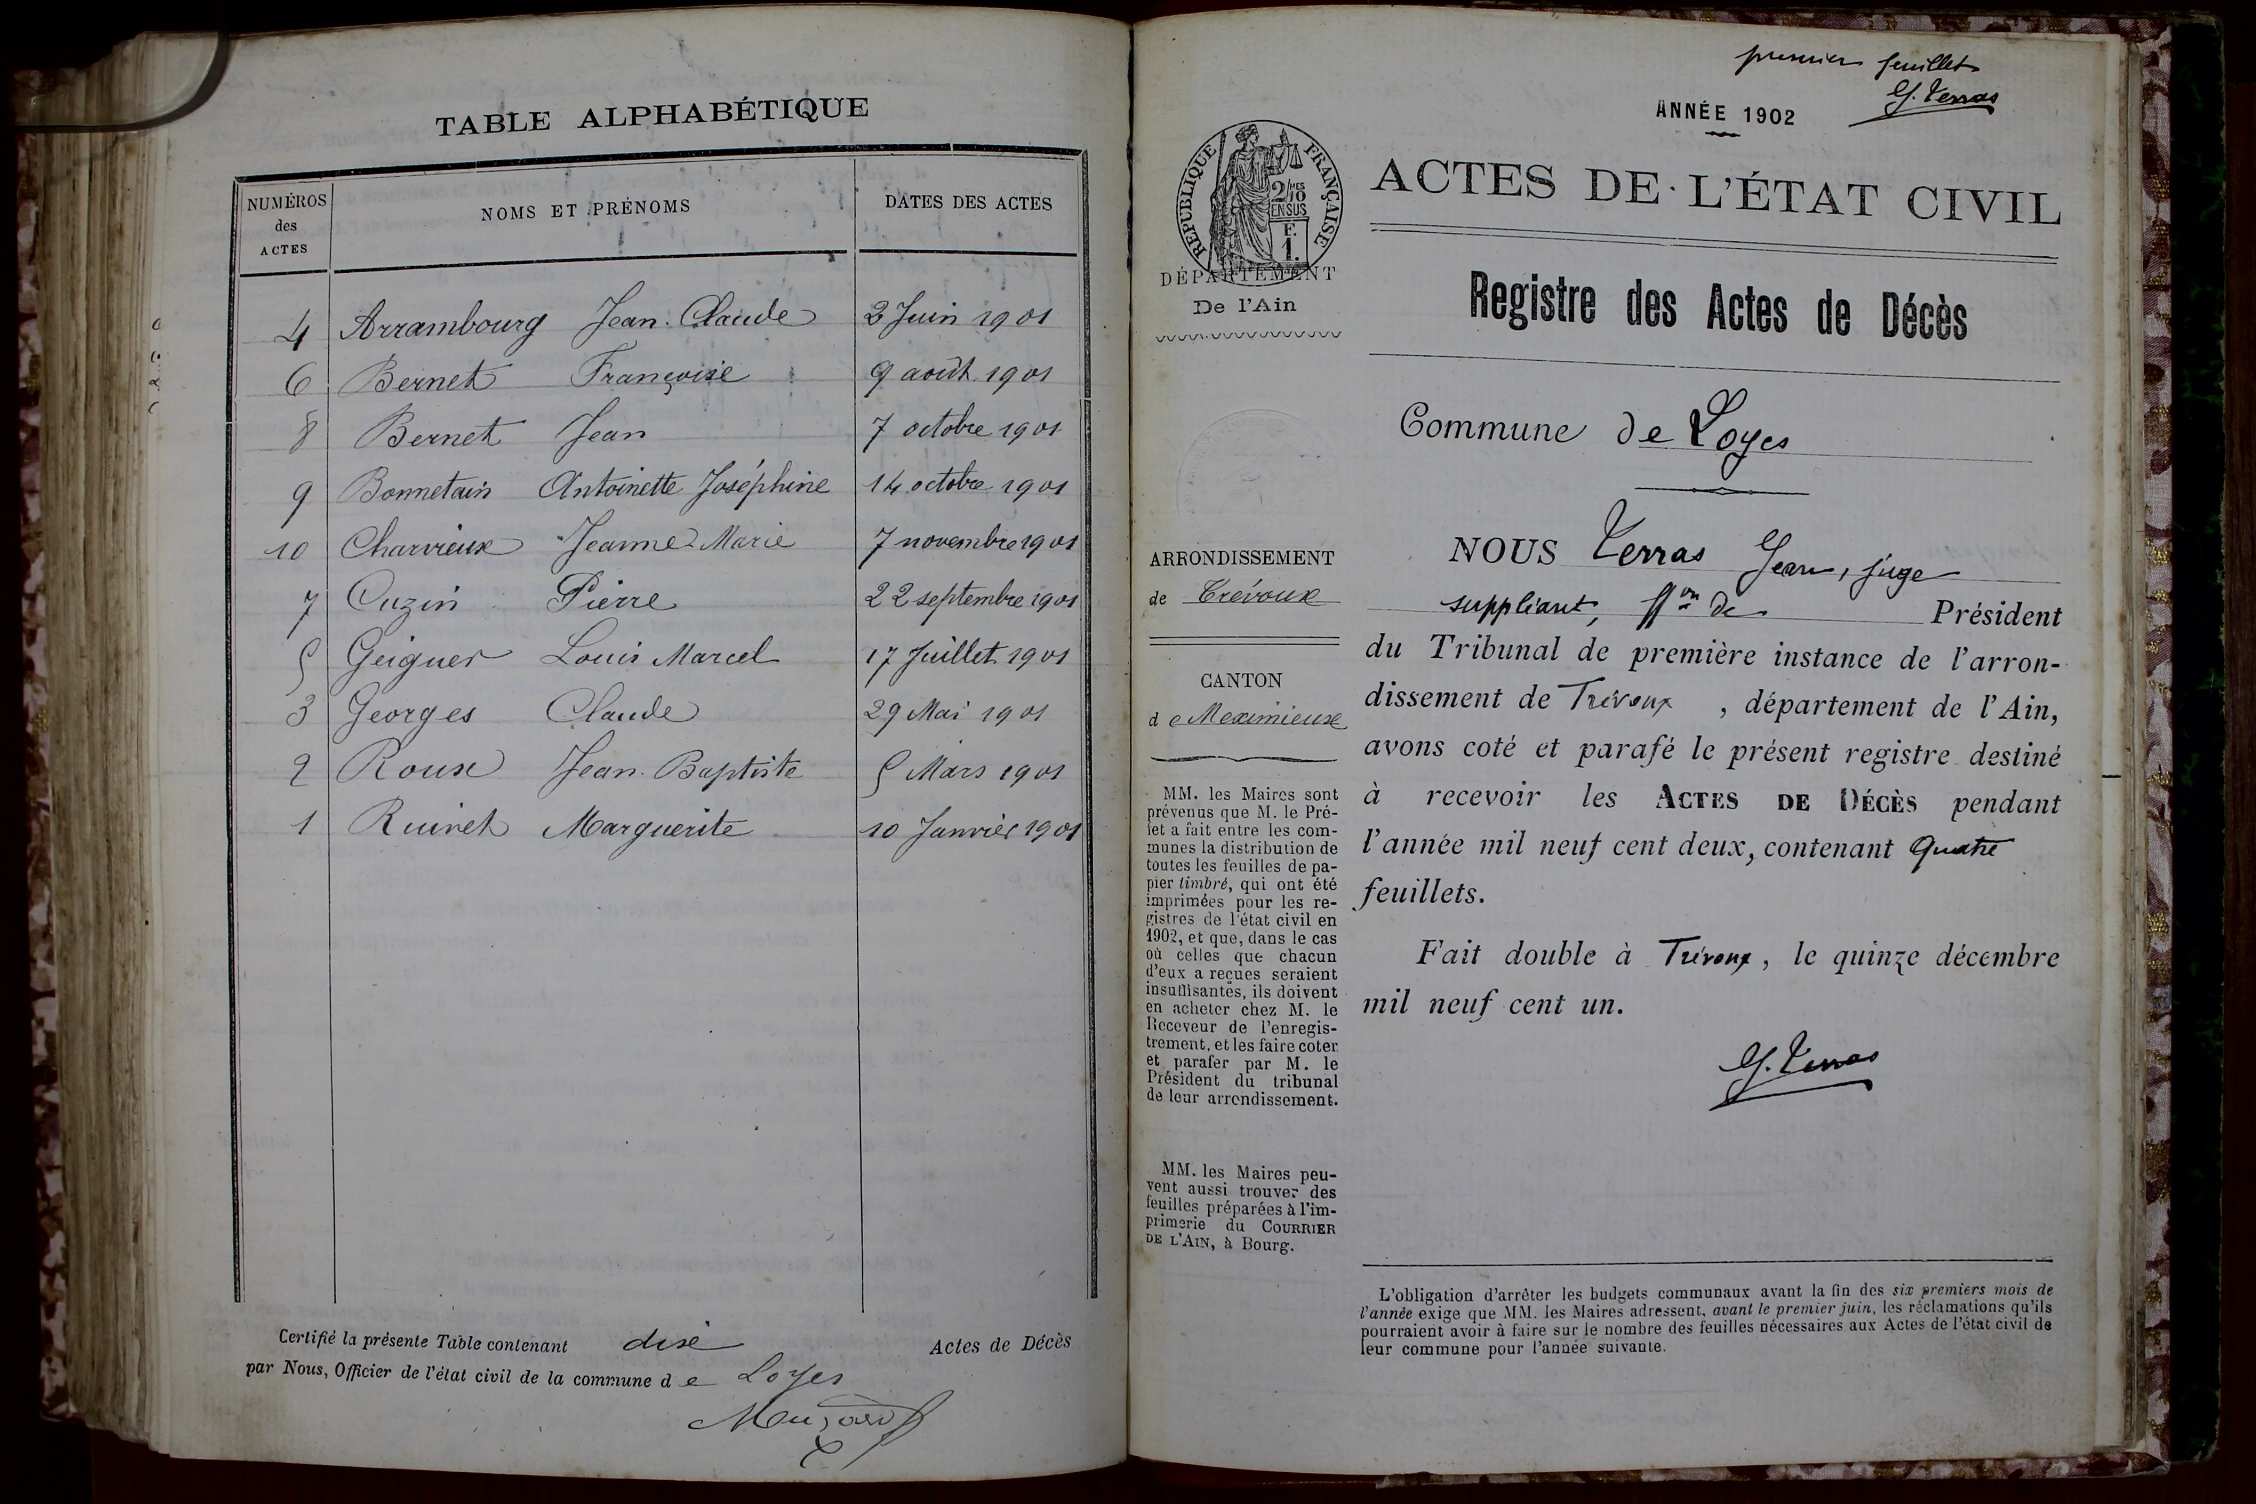 TABLE ALPHABÉTIQUE
NUMÉROS des ACTES NOMS ET PRÉNOMS DATES DES ACTES
4 Arrambourg Jean-Claude 3 Juin 1901
6 Bernet Françoise 9 août 1901
8 Bernet Jean 7 octobre 1901
9 Bonnetain Antoinette Joséphine 14 octobre 1901
10 Charvieux Jeanne-Marie 7 novembre 1901
7 Cuzin Pierre 22 septembre 1901
5 Geiguer Louis Marcel 17 Juillet 1901
3 Georges Claude 29 Mai 1901
2 Roux Jean-Baptiste 5 Mars 1901
1 Ruivet Marguerite 10 Janvier 1901
Certifié la présente Table contenant dix Actes de Décès
par Nous, Officier de l'état civil de la commune de Loyes
premier feuillet
J. Terras
ANNÉE 1902
RÉPUBLIQUE FRANÇAISE
2/10 EN SUS
F.
1.
DÉPARTEMENT
De l'Ain
ARRONDISSEMENT
de Trévoux
CANTON
de Meximieux
MM. les Maires sont
prévenus que M. le Pré-
fet a fait entre les com-
munes la distribution de
toutes les feuilles de pa-
pier timbré, qui ont été
imprimées pour les re-
gistres de l'état civil en
1902, et que, dans le cas
où celles que chacun
d'eux a reçues seraient
insuffisantes, ils doivent
en acheter chez M. le
Receveur de l'enregis-
trement, et les faire coter
et parafer par M. le
Président du tribunal
de leur arrondissement.
MM. les Maires peu-
vent aussi trouver des
feuilles préparées à l'im-
primerie du COURRIER
DE L'AIN, à Bourg.
ACTES DE L'ÉTAT CIVIL
Registre des Actes de Décès
Commune de Loyes
NOUS Terras Jean, juge
suppléant, ffon de Président
du Tribunal de première instance de l'arron-
dissement de Trévoux, département de l'Ain,
avons coté et parafé le présent registre destiné
à recevoir les ACTES DE DÉCÈS pendant
l'année mil neuf cent deux, contenant Quatre
feuillets.
Fait double à Trévoux, le quinze décembre
mil neuf cent un.
J. Terras
L'obligation d'arrêter les budgets communaux avant la fin des six premiers mois de
l'année exige que MM. les Maires adressent, avant le premier juin, les réclamations qu'ils
pourraient avoir à faire sur le nombre des feuilles nécessaires aux Actes de l'état civil de
leur commune pour l'année suivante.